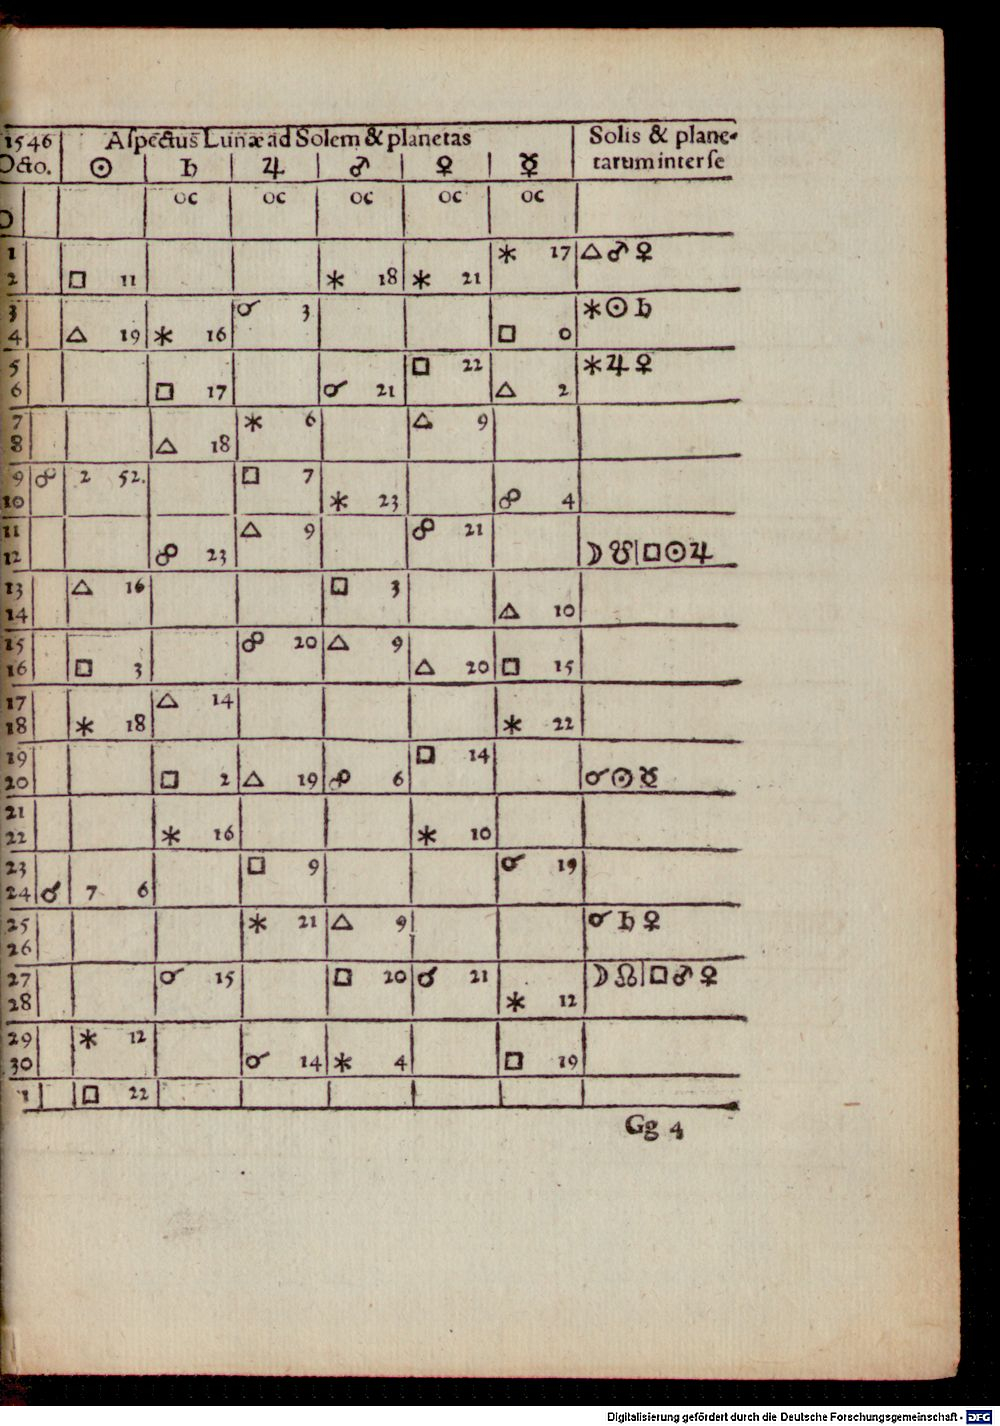 1546 Aſpectus Lunæ ad Solem & planetas Solis & plane-
Octo. ☉ ♄ ♃ ♂ ♀ ☿ tarum inter ſe
oc oc oc oc oc
1 ⚹ 17 △ ♂ ♀
2 □ 11 ⚹ 18 ⚹ 21
3 ☌ 3 ⚹ ☉ ♄
4 △ 19 ⚹ 16 □ 0
5 □ 22 ⚹ ♃ ♀
6 □ 17 ☌ 21 △ 2
7 ⚹ 6 △ 9
8 △ 18
9 ☍ 2 52. □ 7
10 ⚹ 23 ☍ 4
11 △ 9 ☍ 21
12 ☍ 23 ☽ ☋ | □ ☉ ♃
13 △ 16 □ 3
14 △ 10
15 ☍ 20 △ 9
16 □ 3 △ 20 □ 15
17 △ 14
18 ⚹ 18 ⚹ 22
19 □ 14
20 □ 2 △ 19 ☍ 6 ☌ ☉ ☿
21
22 ⚹ 16 ⚹ 10
23 □ 9 ☌ 19
24 ☌ 7 6
25 ⚹ 21 △ 9 ☌ ♄ ♀
26
27 ☌ 15 □ 20 ☌ 21 ☽ ☊ | □ ♂ ♀
28 ⚹ 12
29 ⚹ 12
30 ☌ 14 ⚹ 4 □ 19
1 □ 22
Gg 4
Digitalisierung gefördert durch die Deutsche Forschungsgemeinschaft - DFG